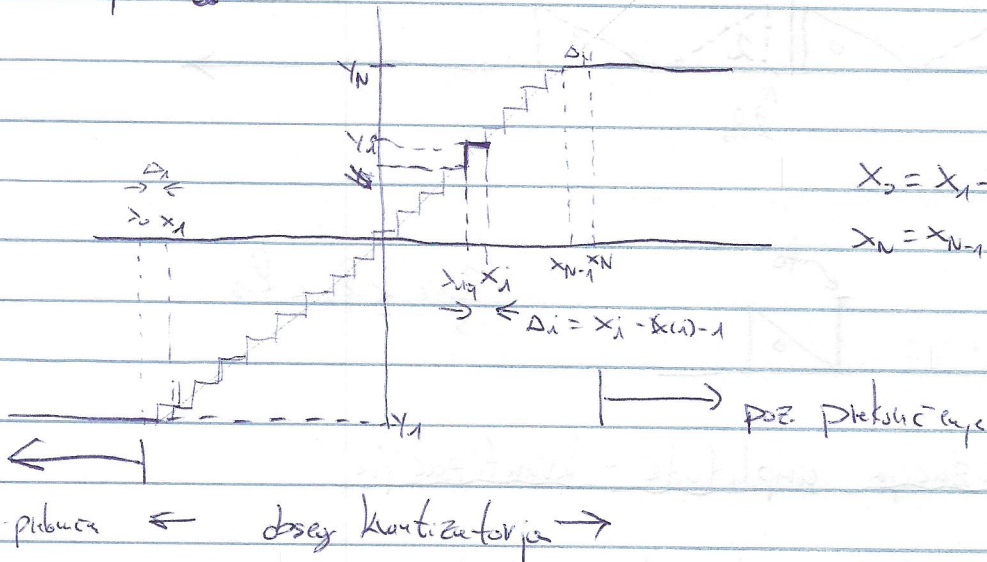 ΔN
YN
Yi
Δ1
X0 X1
X0 = X1 -
XN = XN-1
Xi-1 Xi
XN-1 XN
Δi = Xi - X(i)-1
Y1
poz. prekoračenje
← doseg kvantizatorja →